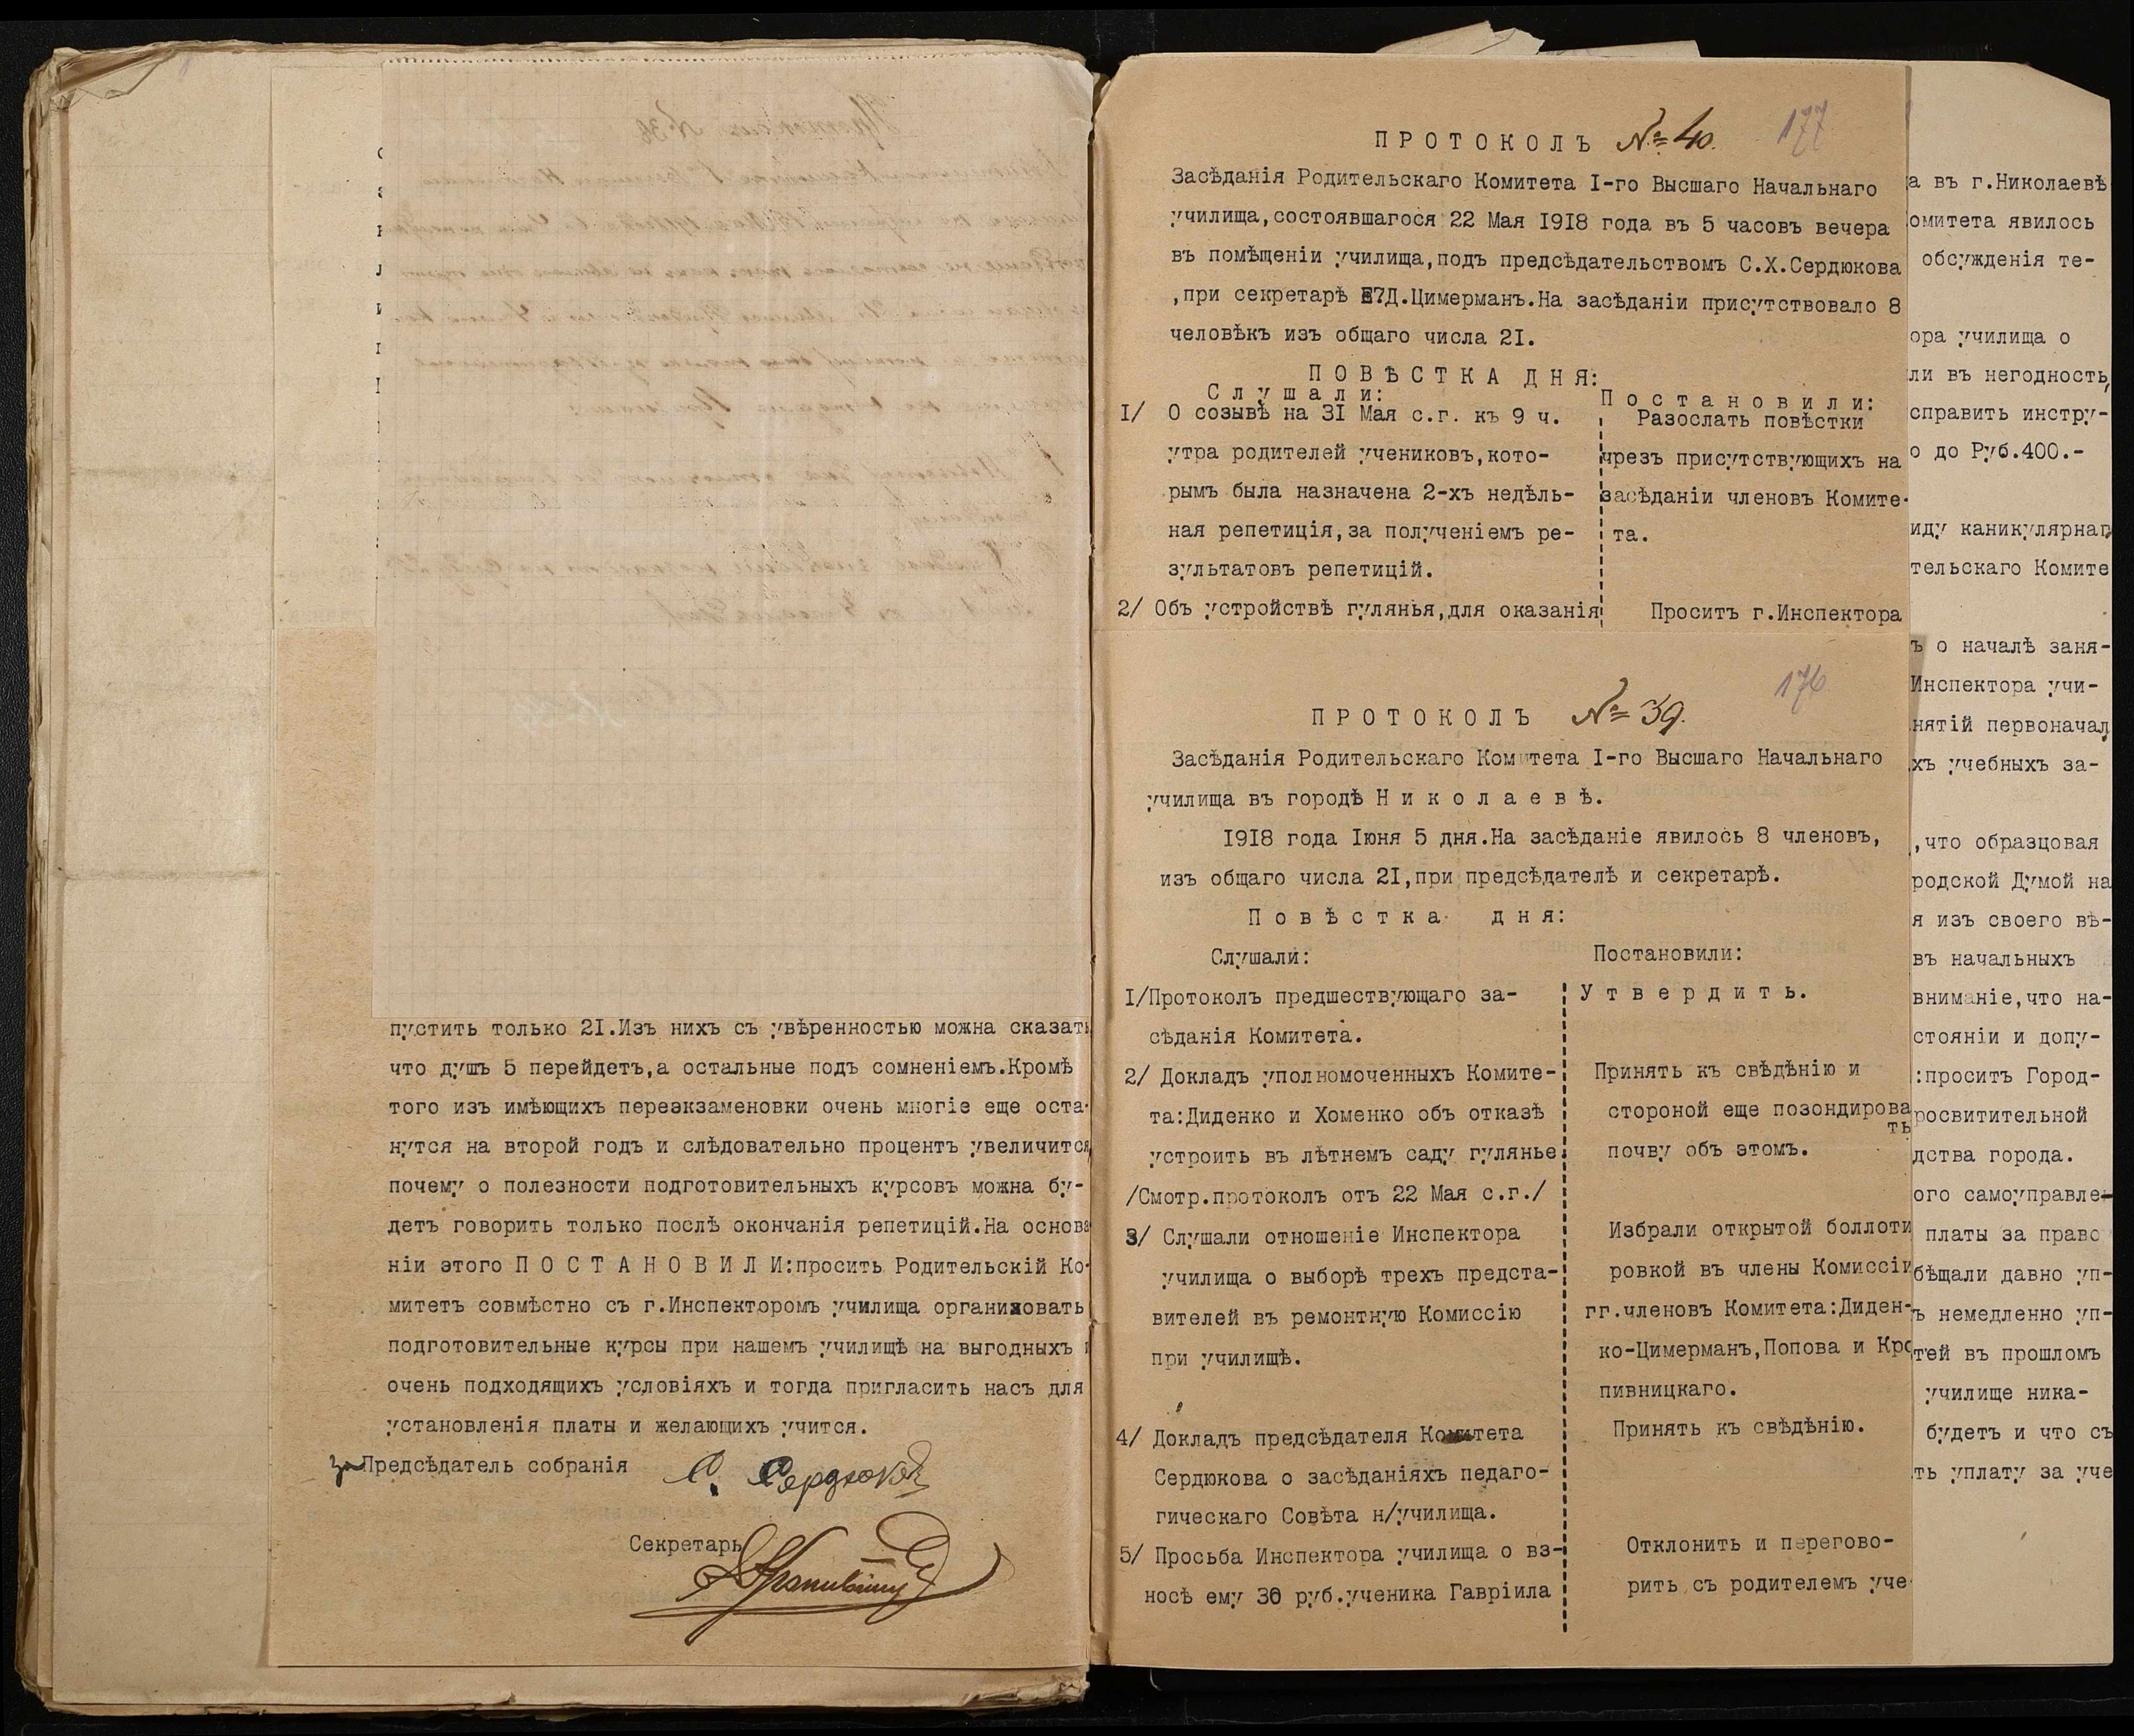 пустить только 21.Изъ нихъ съ увѣренностью можна сказать
что душъ 5 перейдетъ,а остальные подъ сомненіемъ.Кромѣ
того изъ имѣющихъ переэкзаменовки очень многіе еще оста-
нутся на второй годъ и слѣдовательно процентъ увеличится
почему о полезности подготовительныхъ курсовъ можна бу-
детъ говорить только послѣ окончанія репетицій.На основа
ніи этого П О С Т А Н О В И Л И:просить Родительскій Ко-
митетъ совмѣстно съ г.Инспекторомъ училища организовать
подготовительные курсы при нашемъ училищѣ на выгодныхъ
очень подходящихъ условіяхъ и тогда пригласить насъ для
установленія платы и желающихъ учится.
за Предсѣдатель собранія С. Сердюковъ
Секретарь
177
П Р О Т О К О Л Ъ № 40.
Засѣданія Родительскаго Комитета I-го Высшаго Начальнаго
училища,состоявшагося 22 Мая 1918 года въ 5 часовъ вечера
въ помѣщеніи училища,подъ предсѣдательствомъ С.Х.Сердюкова
,при секретарѣ Е7Д.Цимерманъ.На засѣданіи присутствовало 8
человѣкъ изъ общаго числа 21.
П О В Ѣ С Т К А Д Н Я:
С л у ш а л и:
I/ О созывѣ на 31 Мая с.г. къ 9 ч.
утра родителей учениковъ,кото-
рымъ была назначена 2-хъ недѣль-
ная репетиція,за полученіемъ ре-
зультатовъ репетицій.
2/ Объ устройствѣ гулянья,для оказанія
П о с т а н о в и л и:
Разослать повѣстки
чрезъ присутствующихъ на
засѣданіи членовъ Комите-
та.
Просить г.Инспектора
176
П Р О Т О К О Л Ъ № 39.
Засѣданія Родительскаго Комитета I-го Высшаго Начальнаго
училища въ городѣ Н и к о л а е в ѣ.
1918 года Іюня 5 дня.На засѣданіе явилось 8 членовъ,
изъ общаго числа 21,при предсѣдателѣ и секретарѣ.
П о в ѣ с т к а д н я:
Слушали:
I/Протоколъ предшествующаго за-
сѣданія Комитета.
2/ Докладъ уполномоченныхъ Комите-
та:Диденко и Хоменко объ отказѣ
устроить въ лѣтнемъ саду гулянье.
/Смотр.протоколъ отъ 22 Мая с.г./
3/ Слушали отношеніе Инспектора
училища о выборѣ трехъ предста-
вителей въ ремонтную Комиссію
при училищѣ.
4/ Докладъ предсѣдателя Комитета
Сердюкова о засѣданіяхъ педаго-
гическаго Совѣта н/училища.
5/ Просьба Инспектора училища о вз-
носѣ ему 30 руб.ученика Гавріила
Постановили:
У т в е р д и т ь.
Принять къ свѣдѣнію и
стороной еще позондирова
ть
почву объ этомъ.
Избрали открытой боллоти
ровкой въ члены Комиссіи
гг.членовъ Комитета:Диден-
ко-Цимерманъ,Попова и Кро
пивницкаго.
Принять къ свѣдѣнію.
Отклонить и перегово-
рить съ родителемъ уче-
а въ г.Николаевѣ
омитета явилось
обсужденія те-
ора училища о
ли въ негодность,
справить инстру-
о до Руб.400.-
иду каникулярнаг
тельскаго Комите
ъ о началѣ заня-
Инспектора учи-
нятій первоначал
хъ учебныхъ за-
,что образцовая
родской Думой на
я изъ своего вѣ-
въ начальныхъ
вниманіе,что на-
стояніи и допу-
:проситъ Город-
росвитительной
дства города.
ого самоуправле-
платы за право
бѣщали давно уп-
ъ немедленно уп-
тей въ прошломъ
училище ника-
будетъ и что съ
ть уплату за уче